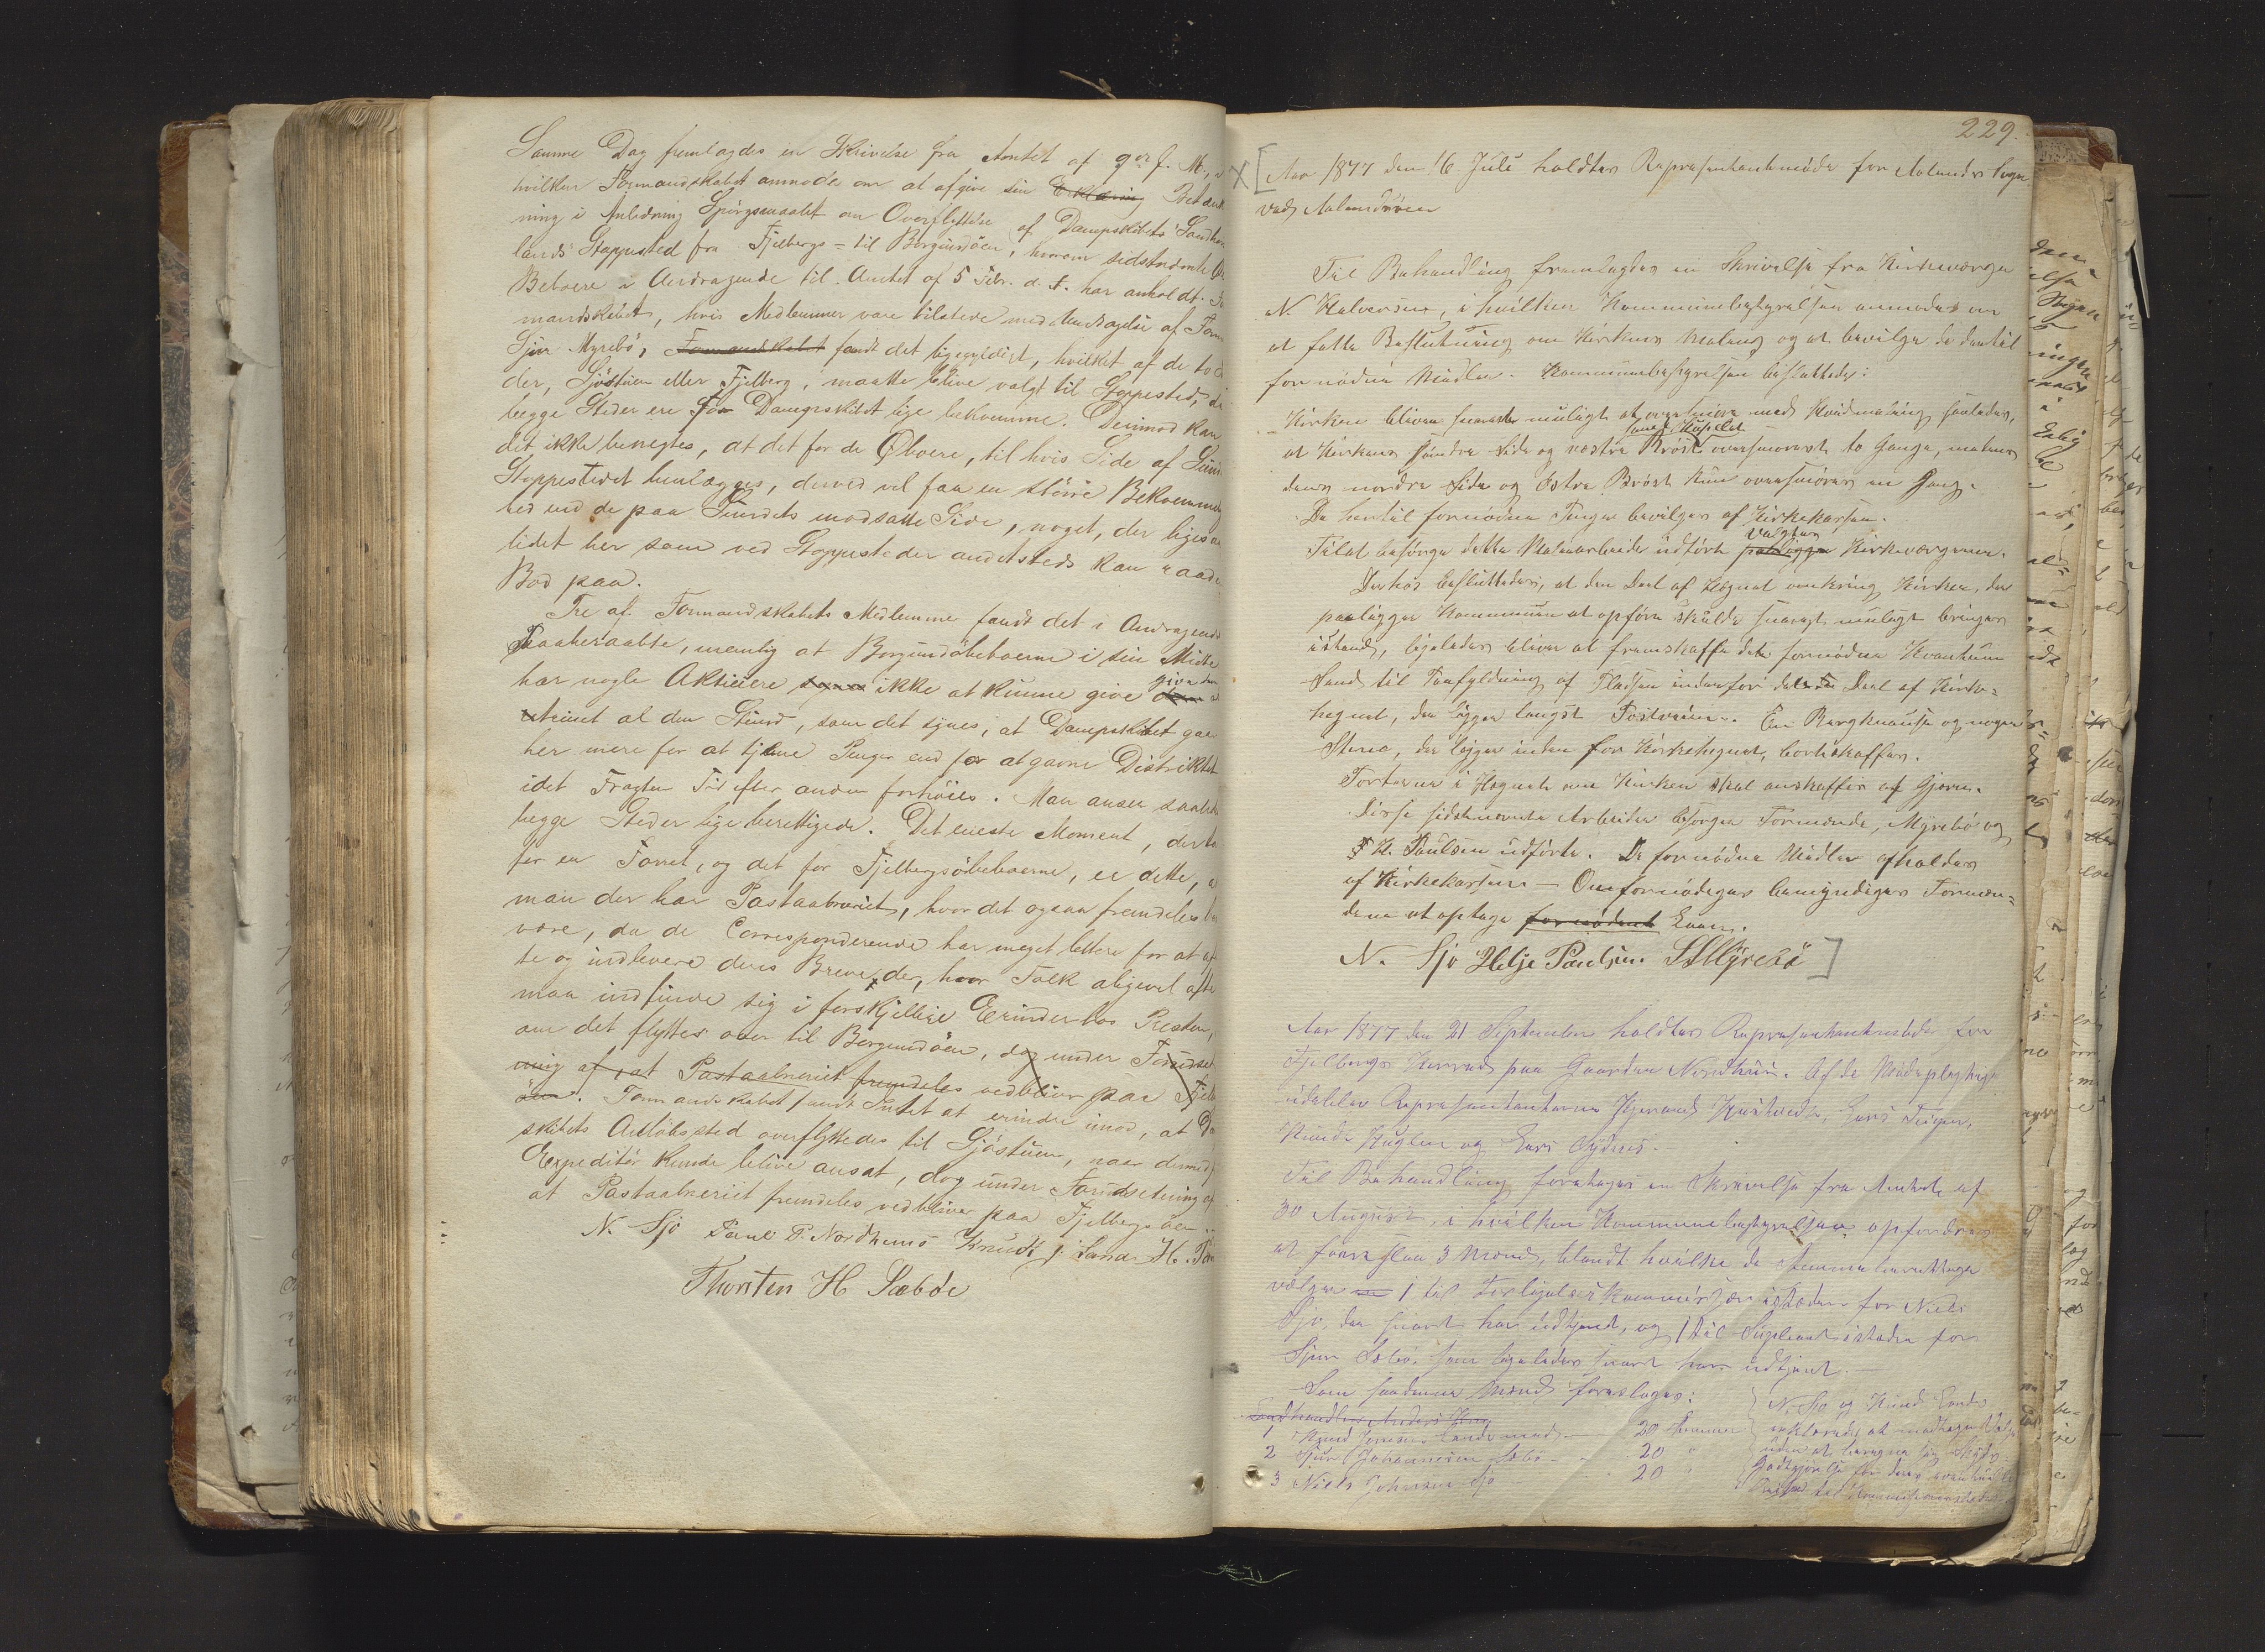 Samme Dag fremlagdes en Skrivelse fra Amtet af 9de f. M., i
hvilken Formandskabet anmodes om at afgive sin Erklæring Betænk
ning i Anledning Spørgsmaalet om Overflyttelse af Dampskibets "Søndhor
lands" Stoppested fra Fjelbergs- til Borgundöen, hvorom sidstnævnte Øs
Beboere i Andragende til Amtet af 5 Febr. d. A. har anholdt. For
mandskabet, hvis Medlemmer vare tilstede med Undtagelse af Form
Sjur Myrebö, Formandskabet fandt det ligegyldigt, hvilket af de to Ste
der, Sjöstuen eller Fjelberg, maatte blive valgt til Stoppested, da
begge Steder ere for Dampskibet lige bekvemme. Derimod kan
det ikke benegtes, at det for de Øboere, til hvis Side af Sund
Stoppestedet henlægges, derved vil faa en större Bekvemmelig
hed end de paa Sundets modsatte Side, noget, der ligesaa
lidet her som ved Stoppesteder andetsteds kan raades
Bod paa.
Tre af Formandskabets Medlemmer fandt det i Andragendet
Paaberaabte, nemlig at Borgundöbeboerne i sin Midte
har nogle Aktieiere synes ikke at kunne give dem giver dem
utrinet al den Stund, som det synes, at Dampskibet gaar
her mere for at tjene Penge end for at gavne Distriktet
idet Fragten Tid efter anden forhöies. Man anser saaledes
begge Steder lige berettigede. Det eneste Moment, der ta
ler en Forret, og det for Fjelbergsöbeboerne, er dette, at
man der har Postaabneriet, hvor det ogsaa fremdeles bör
være, da de Corresponderende har meget lettere for at af
te og indlevere deres Breve der, hvor Folk aligevel ofte
maa indfinde sig i forskjellige Erinder hos Presten,
om det flyttes over til Borgundöen, dog under Forudsæt
ning af, at Postaabneriet fremdeles vedbliver paa Fjelb
öen. Formandskabet fandt Intet at erindre imod, at Damp
skibets Anlöbssted overflyttedes til Sjöstuen, naar dermed
Expeditör kunde blive ansat, dog under Forudsetning af
at Postaabneriet fremdeles vedbliver paa Fjelbergsöen.
N. Sjo Paul P. Nordhuus Knud J. Sande H. Pau
Thorsten H Sæböe
229.
Aar 1877 den 16. Juli holdtes Repræsentantmøde for Ølands Sogn
ved Ølandsöen
Til Behandling fremlagdes en Skrivelse fra Kirkeværge
N. Halvorsen, i hvilken Kommunebestyrelsen anmodes om
at fatte Beslutning om Kirkens Maling og at bevilge de dertil
fornødne Midler. Kommunebestyrelsen besluttede:
Kirken bliver snarest muligt at oversmöre med Hvidmaling saaledes,
at Kirkens söndre Side og vestre Bröst samt Kapellet oversmöres to Gange, medens
dens nordre Side og östre Bröst kun oversmöres en Gang.
De hertil fornödne Penge bevilges af Kirkekassen.
Til at besörge dette Malerarbeide udfört paalægges valgtes Kirkeværgerne.
Derhos besluttedes, at den Deel af Hegnet omkring Kirken, der
paaligger Kommunen at opföre skulde snarest muligt bringes
istand, ligeledes bliver at fremskaffe det fornödne Kvantum
Sand til Paafyldning af Pladsen indenfor den Deel af Kirke-
hegnet, der ligger langst Postveien. En Bergknause og nogen
Stene, der ligger inden for Kirkehegnet, bortskaffes.
Portene i Hegnet om Kirken skal anskaffes af Gjern.
Disse sidstnævnte Arbeider besörger Formænd, Myrebö og
H. Paulsen udförte. De fornödne Midler afholdes
af Kirkekassen – Om fornödiges bemyndiges Formæn-
dene at optage fornödent Laan.
N. Sjo Helje Paulsen. S Myrebö
Aar 1877 den 21 September holdtes Repræsentantmøde for
Fjelbergs Herred paa Gaarden Nordhuus. Af de Mødepligtige
udeblev Repræsentanterne Ingemund Hustvedt, Lars Teigen,
Knud Huglen og Lars Sydnes.
Til Behandling foretoges en Skrivelse fra Amtet af
30 August, i hvilken Kommunebestyrelsen opfordres
at foreslaa 3 Mænd, blandt hvilke de stemmeberettigede
vælger 1 til Forligelseskommissær istæden for Niels
Sjo, der snart har udtjent, og 1 til Suppleant istæden for
Sjur Sæbö, som ligeledes snart har udtjent.
Som saadanne Mænd foreslages:
Landhandler Anders
1 Knud Jonsen Landsmand 20 Stemmer
2 Sjur Johannesen Sæbö 20 "
3 Niels Johnsen Sjo 20 "
N. Sjo og Knud Lande
erklærede at modtage Valg
uden at beregne sig Skyds
Godtgjörelse for deres